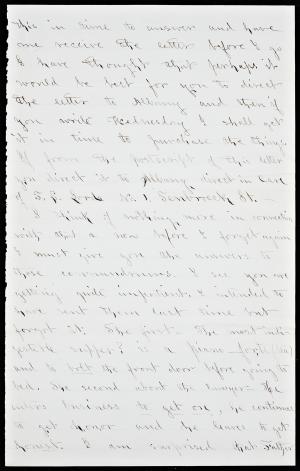 this in time to answer and have
me receive the letter before I go
I have thought that perhaps it
would be best for you to direct
the letter to Albany and then if
you write Wednesday I shall get
it in time to purchase the things
If from the postscript of this letter
you direct it to Albany direct in Care
of No. 1, St.
I think of nothing more in connection
with that & now before I forget again
I must give you the answers to
those conundrums. I see you are
getting quite impatient. I intended to
have sent them last time but
forgot it. The first - The most
supper? is a piano-forte
and to bolt the front door before going to
bed. The second about the lawyer - the
business to get on, he continues
to get honor and he leaves to get
honest. I am surprised that Father